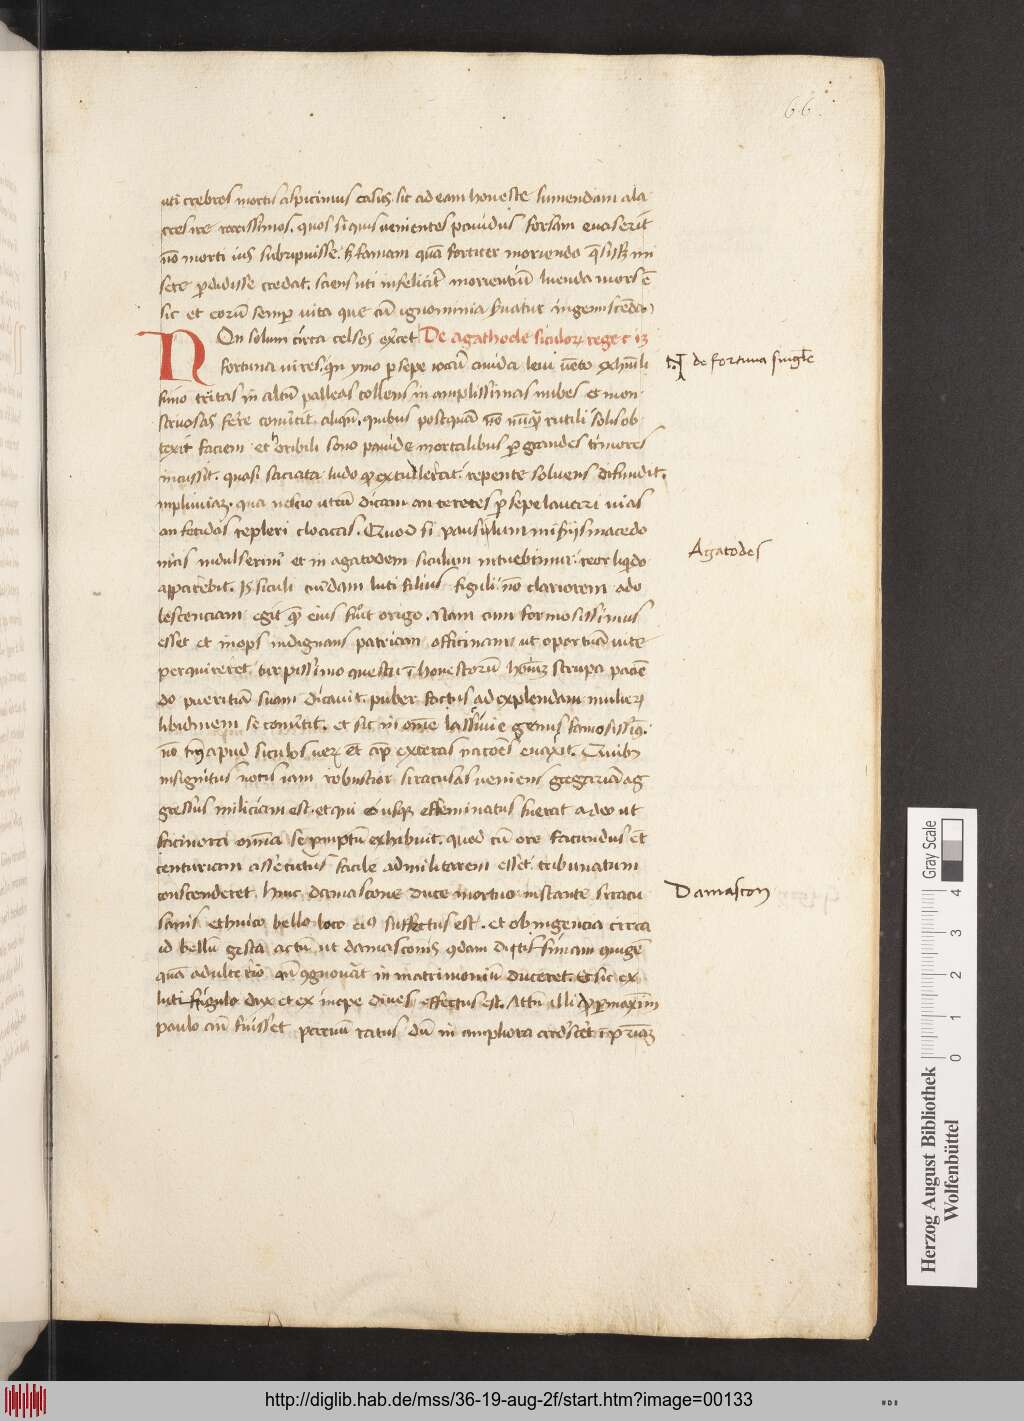 66
uti crebros mortis aspicimus casus, sic ad eam honeste sumendam ala
cres ire rarissimos. quos si quis venientes pavidus forsam evaserit
nō morti ius subripuisse. famam quā fortiter moriendo mi
sere pdidisse credat. sciens uti infelicit morientiū luenda mors ē
sic et eorū semp vita que cū ignominia svatur ingemiscēda
NOn solum circa celsos exercet De agathocle siculor rege c iz
fortuna vires. qn ymo psepe iocari cuida levi vēto exhumili
fimo tritas in altū palleas tollens in amplissimas nubes et mon
struosas fere convertit aliqn. quibus postquā nō nūq rutili solis ob
texit faciem et horibili sono pavide mortalibus pgrandes timores
incussit. quasi saciata ludo q extullerat. repente solvens difundit
impluvia. qua nescio utrū dicam an teretes psepe lavari vias
an fetidas repleri cloacas. Quod si pausulum misijs macedo
nicis indulserim et in agatodem siculum intuebimur. reor liqdo
apparebit. Is siculi cuidam luti filius figuli nō clariorem ado
lescenciam egit q eius fuit origo. Nam cum formosissimus
esset et inops indignans patriam officinam ut oportuā vite
perquireret turpissimo questu i honestorū hoim strupa pacie
do pueritiā suam dicavit. puber factus ad explendam mulier
libidinem se convertit. et sic in omne lascivie genus famosissi
nō tm apud siculos ver et ap exteras nacōes evaxit. Quib
insignitus notis iam robustior siracusas veniens gregariā ag
gressus miliciam est. et qui eousq effeminatus fuerat adeo ut
facinora omia se pmptū exhibuit. quod cū ore facundus et
centuriam assecutus facile ad militarem esset tribunatum
conscenderet. hinc damascone duce mortuo instante siracu
sanis ethnico bello loco ei suffectus est. et ob ingencia circa
id bellū gesta actū ut damasconis qdam ditissimam coniugē
qua adulterio an cognovat in matrimoniū duceret. Et sic ex
luti figulo dux et ex inope dives effectus est. Attn illi q p maxim
paulo an fuisset parvū ratus dū in ampliora crescet
de fortuna singule
Agatodes
Damascon
Gray Scale
0 1 2 3 4
Herzog August Bibliothek
Wolfenbüttel
http://diglib.hab.de/mss/36-19-aug-2f/start.htm?image=00133